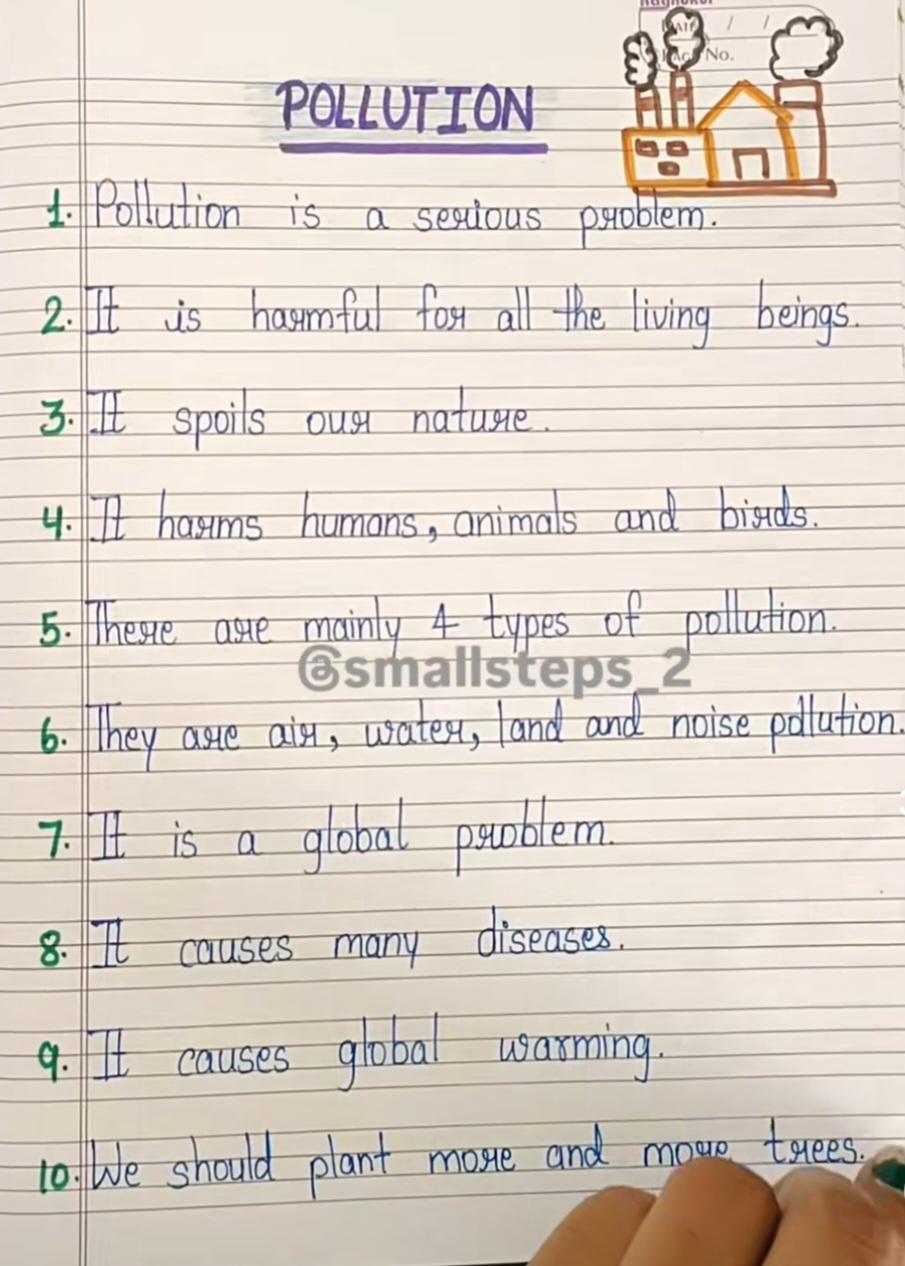 DATE / /
PAGE No.
POLLUTION
1. Pollution is a serious problem.
2. It is harmful for all the living beings.
3. It spoils our nature.
4. It harms humans, animals and birds.
5. There are mainly 4 types of pollution.
@smallsteps_2
6. They are air, water, land and noise pollution.
7. It is a global problem.
8. It causes many diseases.
9. It causes global warming.
10. We should plant more and more trees.